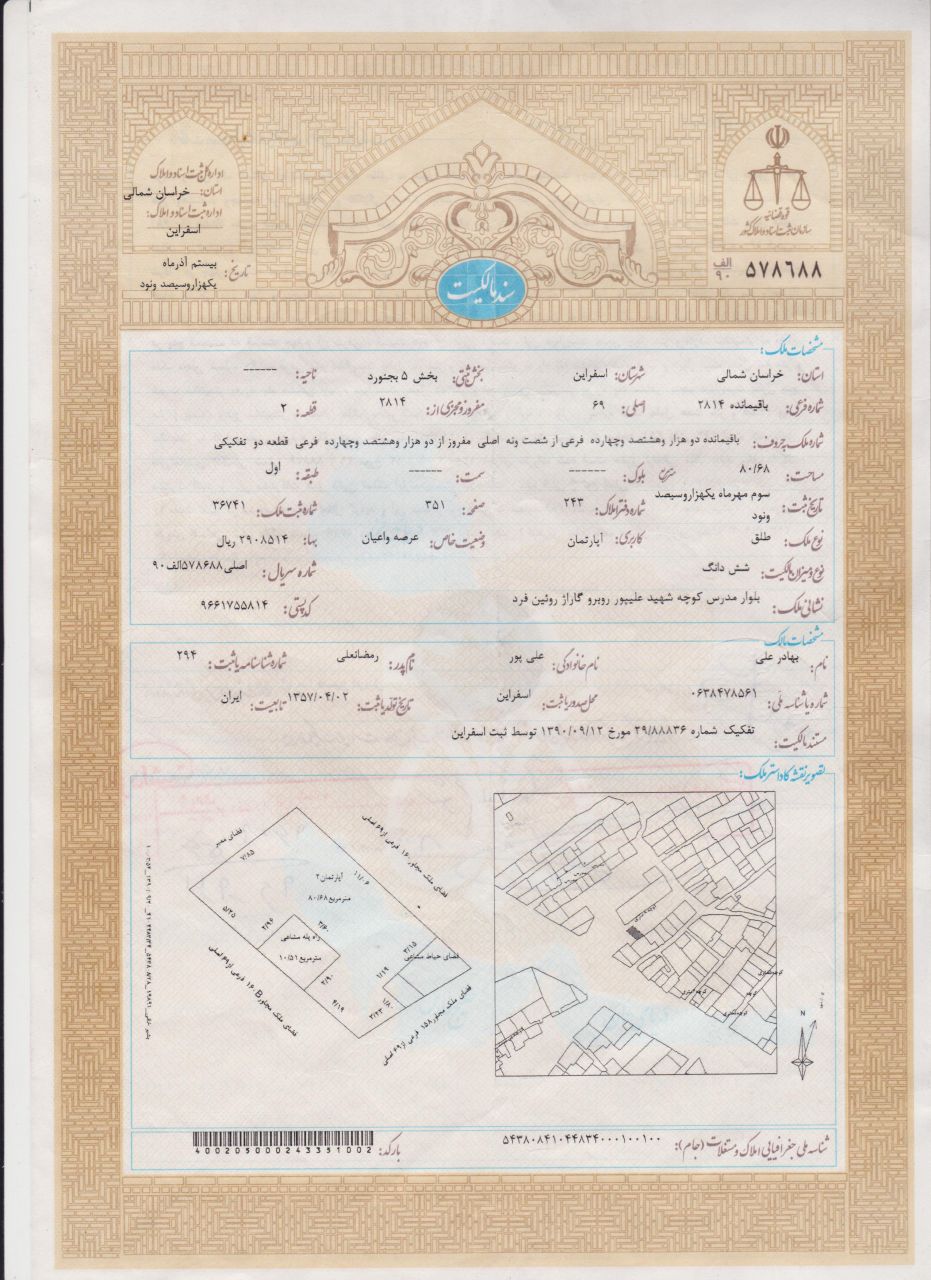 قوه قضائیه
سازمان ثبت اسناد و املاک کشور
۵۷۸۶۸۸ الف ۹۰
اداره کل ثبت اسناد و املاک
استان: خراسان شمالی
اداره ثبت اسناد و املاک:
اسفراین
تاریخ: بیستم آذرماه
یکهزاروسیصد ونود
سند مالکیت
مشخصات ملک:
استان: خراسان شمالی شهرستان: اسفراین بخش ثبتی: بخش ۵ بجنورد ناحیه: ------
شماره فرعی: باقیمانده ۲۸۱۴ اصلی: ۶۹ مفروز و مجزی از: ۲۸۱۴ قطعه: ۲
شماره ملک به حروف: باقیمانده دو هزار وهشتصد وچهارده فرعی از شصت ونه اصلی مفروز از دو هزار وهشتصد وچهارده فرعی قطعه دو تفکیکی
مساحت: ۸۰/۶۸ مترمربع بلوک: ------ سمت: ------ طبقه: اول
تاریخ ثبت: سوم مهرماه یکهزاروسیصد ونود شماره دفتر املاک: ۲۴۳ صفحه: ۳۵۱ شماره ثبت ملک: ۳۶۷۴۱
نوع ملک: طلق کاربری: آپارتمان وضعیت خاص: عرصه واعیان بها: ۲۹۰۸۵۱۴ ریال
نوع و میزان مالکیت: شش دانگ شماره سریال: اصلی۵۷۸۶۸۸الف۹۰
نشانی ملک: بلوار مدرس کوچه شهید علیپور روبرو گاراژ روئین فرد کدپستی: ۹۶۶۱۷۵۵۸۱۴
مشخصات مالک
نام: بهادر علی نام خانوادگی: علی پور نام پدر: رمضانعلی شماره شناسنامه یا ثبت: ۲۹۴
شماره یا شناسه ملی: ۰۶۳۸۴۷۸۵۶۱ محل صدور یا ثبت: اسفراین تاریخ تولد یا ثبت: ۱۳۵۷/۰۴/۰۲ تابعیت: ایران
مستند مالکیت: تفکیک شماره ۲۹/۸۸۸۳۶ مورخ ۱۳۹۰/۰۹/۱۲ توسط ثبت اسفراین
تصویر نقشه کاداستر ملک:
فضای معبر
۷/۸۵
فضای ملک مجاور ۱۶۰ فرعی از ۶۹ اصلی
۱۱/۰۶
آپارتمان ۲
۸۰/۶۸ مترمربع
۵/۲۵
۲/۹۵
۳/۶۰
راه پله مشاعی
۱۰/۵۱ مترمربع
۲/۹۰
۴/۱۹
۳/۱۵
فضای حیاط مشاعی
۱/۱۹
۱/۸۰
۳/۲۳
فضای ملک مجاور ۱۶۰B فرعی از ۶۹ اصلی
فضای ملک مجاور ۱۵۸ فرعی از ۶۹ اصلی
N
شناسه ملی جغرافیایی املاک و مستغلات (جام): ۵۴۳۸۰۸۴۱۰۴۴۸۳۴۰۰۰۱۰۰۱۰۰
بارکد: 4002050002433​51002